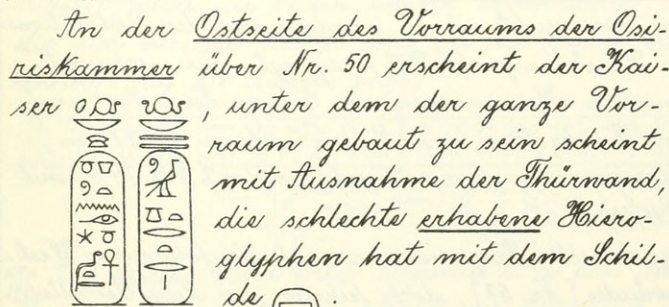 An der Ostseite des Vorraums der Osi-
riskammer über Nr. 50 erscheint der Kai-
ser , unter dem der ganze Vor-
raum gebaut zu sein scheint
mit Ausnahme der Thürwand,
die schlechte erhabene Hiero-
glyphen hat mit dem Schil-
de :